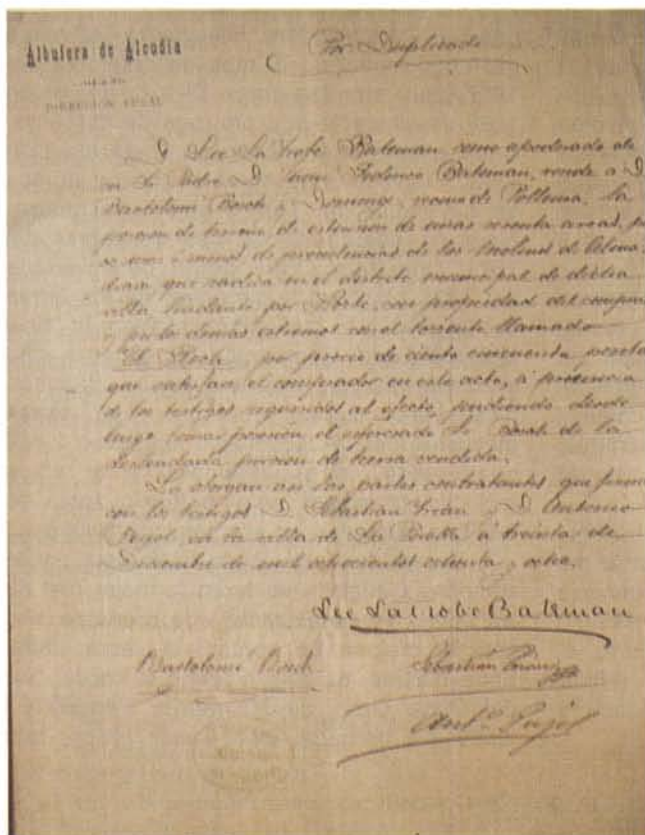 Albufera de Alcudia
DIRECCIÓN LOCAL
Por Duplicado
D. Lee La Trobe Bateman como apoderado de
su Sr. Padre D. Juan Federico Bateman, vende a D.
Bartolomé Bosch y Domingo, vecino de Pollensa, la
porcion de terreno de estension de unas areas,
o menos de procedencias de los Molinos de
que radica en el distrito municipal de dicha
villa lindante por Norte, con propiedad del
y por lo demas estremos con el torrente llamado
por precio de ciento cincuenta
que satisface el comprador en este acto, á presencia
de los testigos requeridos al efecto, pudiendo desde
luego tomar posesión el referido Sr. Bosch de la
deslindada porcion de tierra vendida.
Lo otorgan asi las partes contratantes que
con los testigos D. Sebastian y D. Antonio
Pujol en la villa de La Puebla á treinta de
de mil ochocientos ochenta y ocho.
Lee LaTrobe Bateman
Bartolomé Bosch
Sebastian
Ant.º Pujol